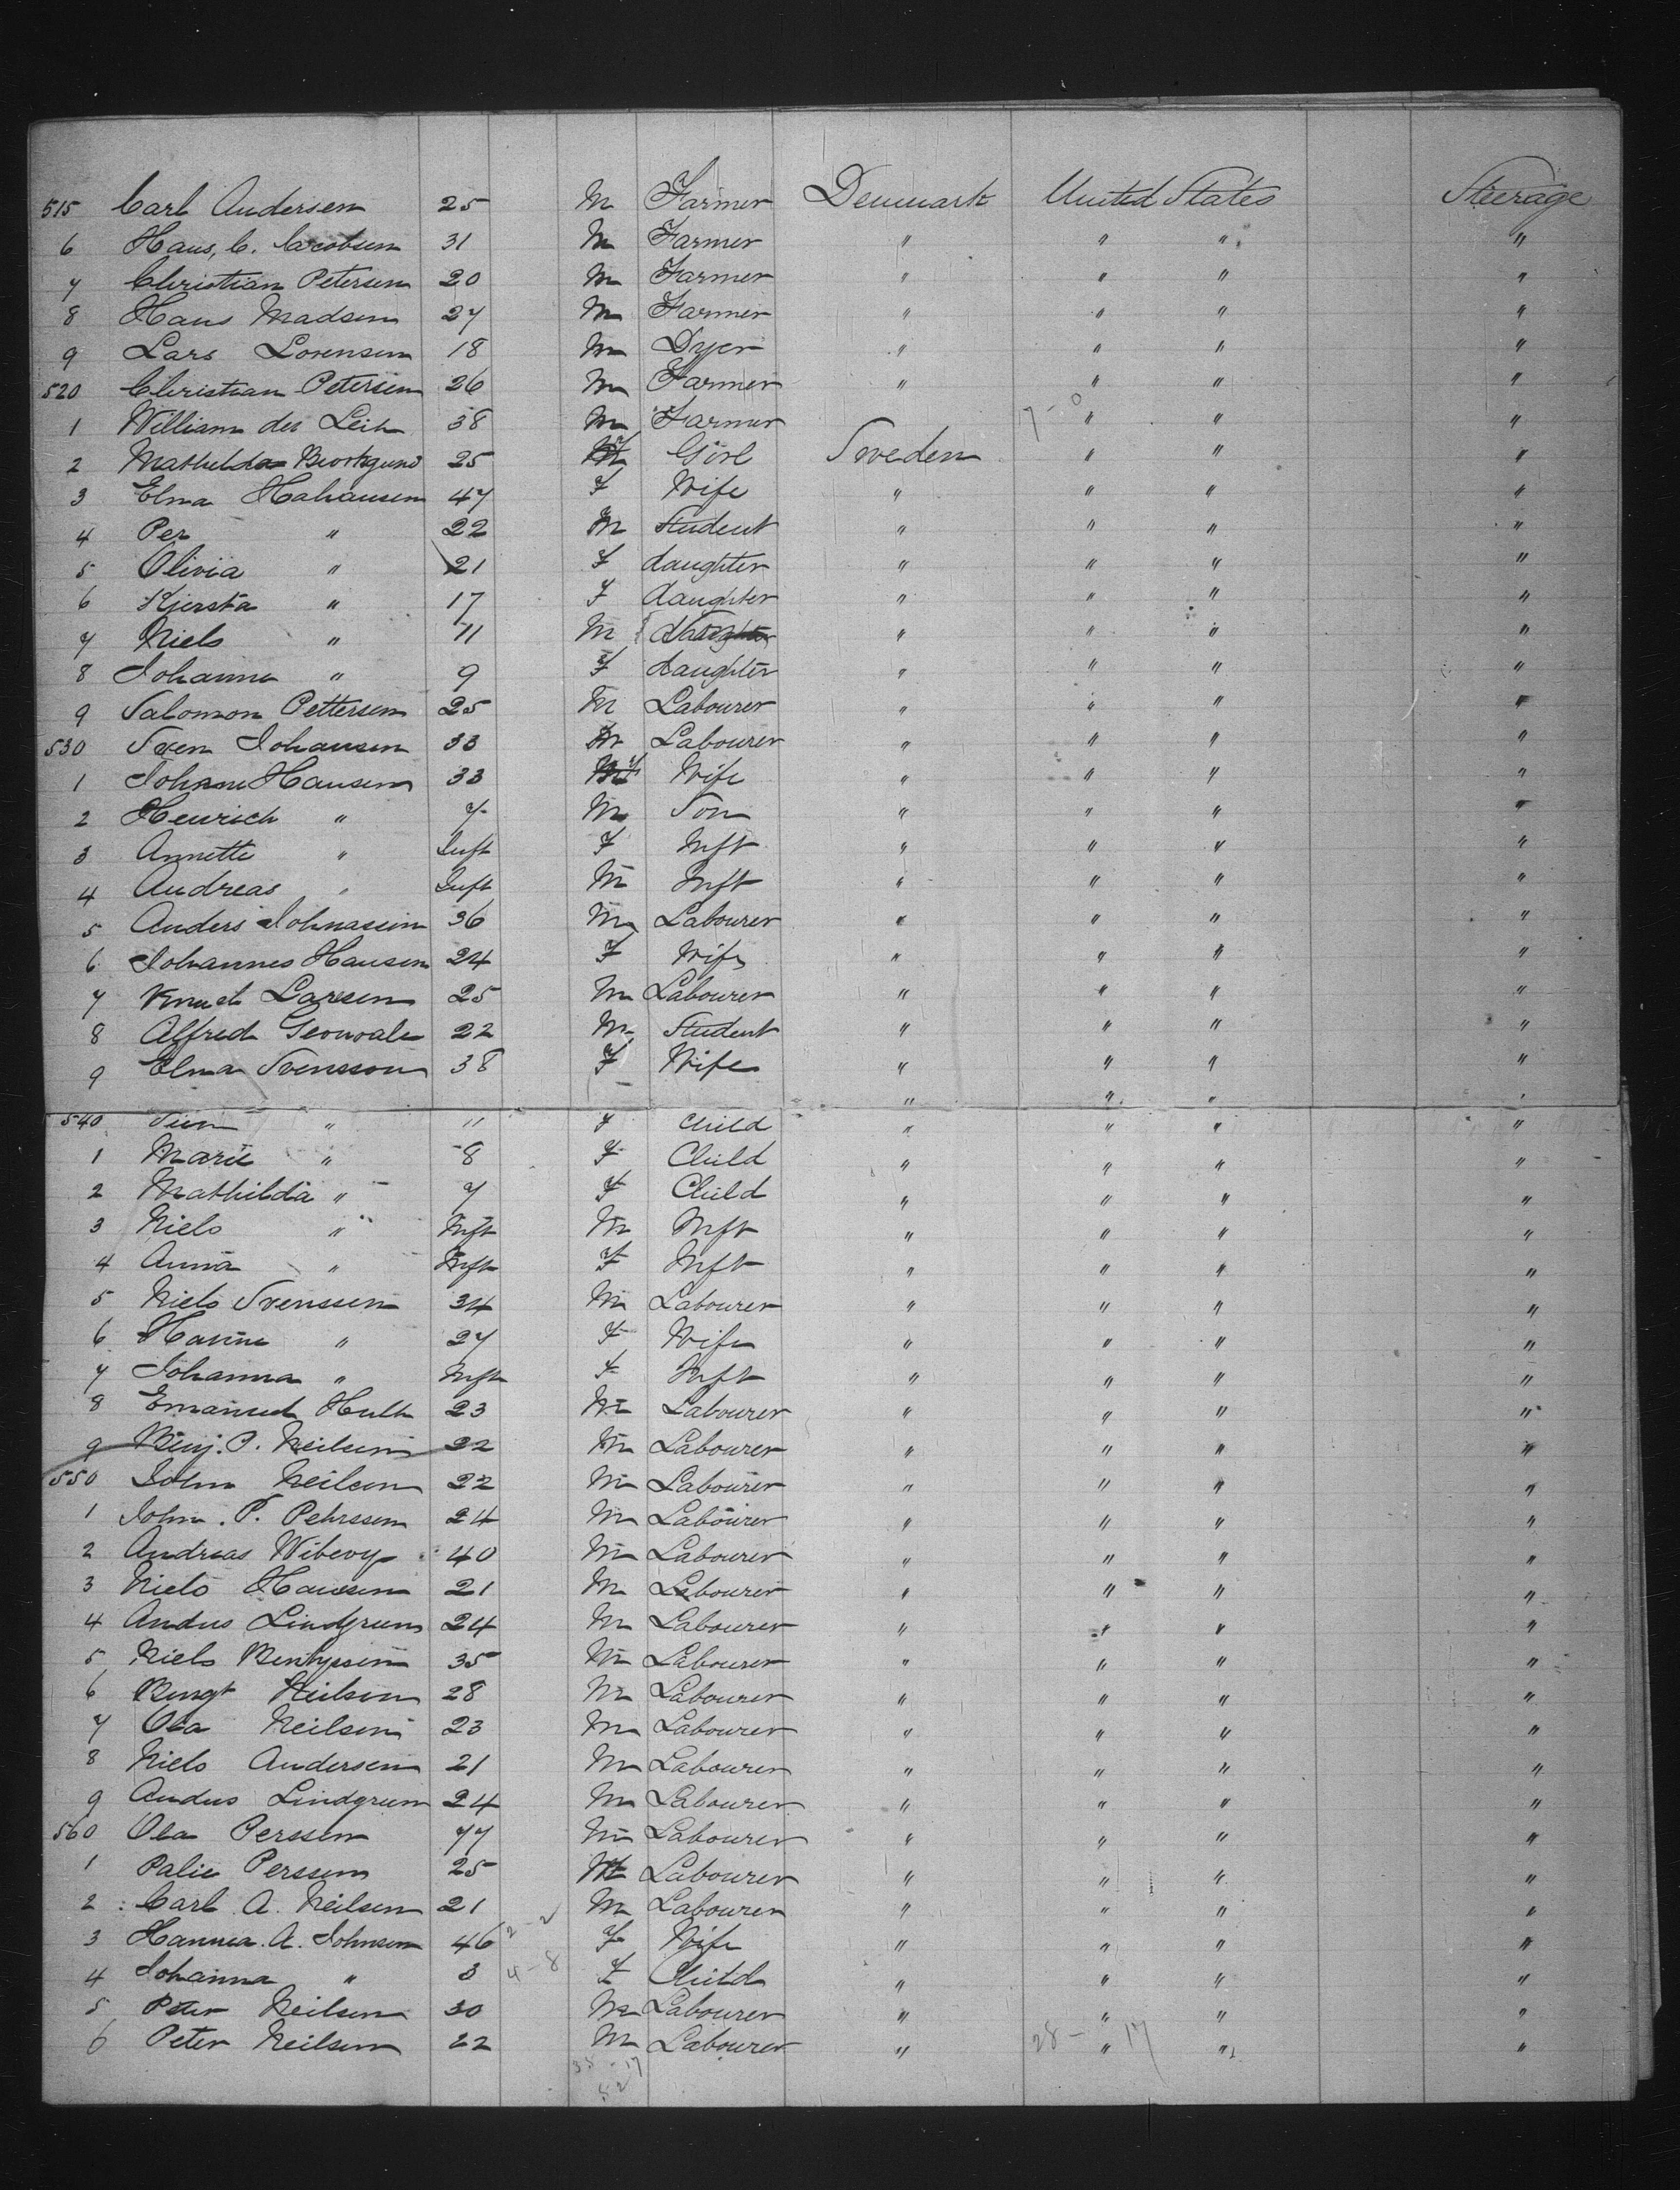 515 Carl Andersen 25 M Farmer Denmark United States Steerage
6 Hans, C. Jacobsen 31 M Farmer " " " "
7 Christian Petersen 20 M Farmer " " " "
8 Hans Madsen 27 M Farmer " " " "
9 Lars Lorensen 18 M Dyer " " " "
520 Christian Petersen 26 M Farmer " " " "
1 William der Leih 38 M Farmer 7-0 " " "
2 Mathilda 25 F Girl Sweden " " "
3 Elna Hahansen 47 F Wife " " " "
4 Per " 22 M Student " " " "
5 Olivia " 21 F daughter " " " "
6 Kjersta " 17 F daughter " " " "
7 Niels " 11 M " " " "
8 Johanna " 9 F daughter " " " "
9 Salomon Pettersen 25 M Labourer " " " "
530 Sven Johansen 33 M Labourer " " " "
1 Johanne Hansen 33 F Wife " " " "
2 Heinrich " 7 M Son " " " "
3 Annette " Inft F Inft " " " "
4 Andreas " Inft M Inft " " " "
5 Anders Johnassen 36 M Labourer " " " "
6 Johannes Hansen 24 F Wife " " " "
7 Knuet Larsen 25 M Labourer " " " "
8 Alfred 22 M Student " " " "
9 Elna Svensson 38 F Wife " " " "
" " " "
540 " 11 F Child " " " "
1 Marie " 8 F Child " " " "
2 Mathilda " 7 F Child " " " "
3 Niels " Inft M Inft " " " "
4 Anna " Inft F Inft " " " "
5 Niels Svenssen 34 M Labourer " " " "
6 Hanne " 27 F Wife " " " "
7 Johanna " Inft F Inft " " " "
8 Emanuel Hult 23 M Labourer " " " "
9 Benj. P. Neilsen 22 M Labourer " " " "
550 John Neilsen 22 M Labourer " " " "
1 John. P. Pehrssen 24 M Labourer " " " "
2 Andreas 40 M Labourer " " " "
3 Niels Hanssen 21 M Labourer " " " "
4 Andus Lindgren 24 M Labourer " " " "
5 Niels 35 M Labourer " " " "
6 Bengt Neilsen 28 M Labourer " " " "
7 Ola Neilsen 23 M Labourer " " " "
8 Niels Andersen 21 M Labourer " " " "
9 Andus Lindgren 24 M Labourer " " " "
560 Ola Perssen 77 M Labourer " " " "
1 Palie Perssen 25 M Labourer " " " "
2 Carl A. Neilsen 21 M Labourer " " " "
3 Hanna. A. Johnsen 46 2-2 F Wife " " " "
4 Johanna " 3 4-8 F Child " " " "
5 Peter Neilsen 30 M Labourer " " " "
6 Peter Neilsen 22 M Labourer " 28-17 " " "